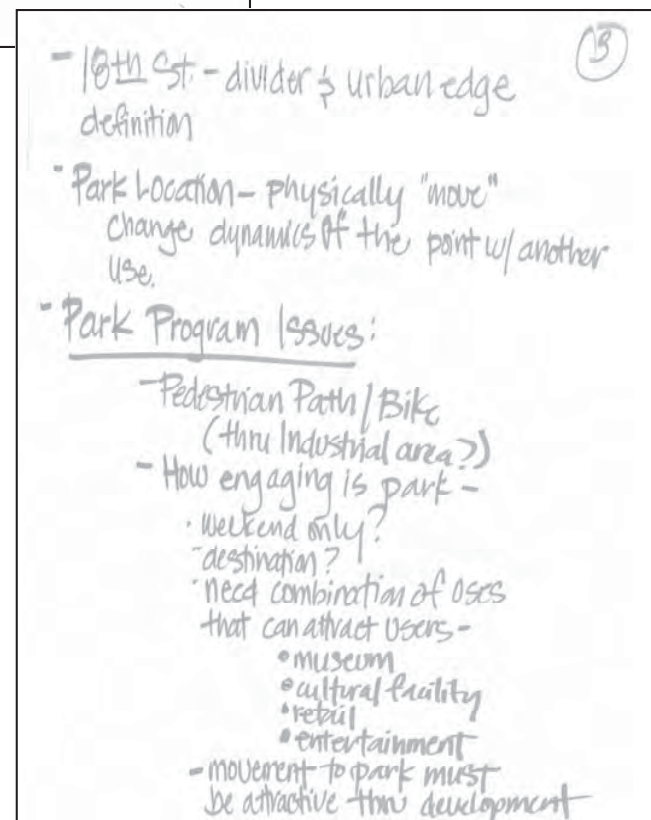 3
- 18th St. - divider & urban edge
definition
- Park Location - physically "move"
change dynamics of the point w/ another
use.
- Park Program Issues:
- Pedestrian Path / Bike
(thru Industrial area?)
- How engaging is park -
· weekend only?
- destination?
· need combination of uses
that can attract users -
• museum
• cultural facility
• retail
• entertainment
- movement to park must
be attractive thru development